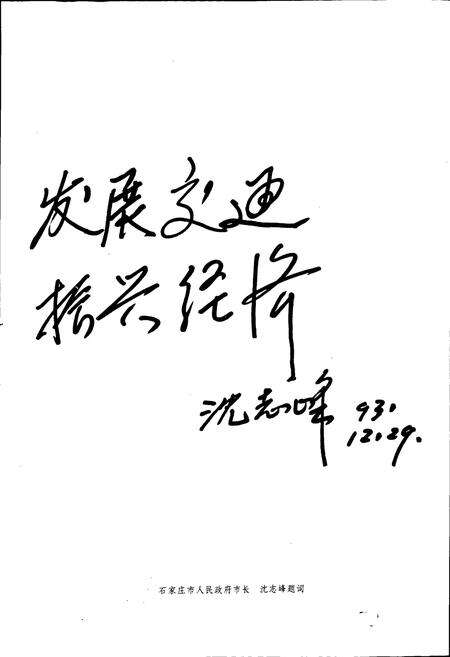 发展交通
振兴经济
沈志峰 93.
12.29.
石家庄市人民政府市长 沈志峰题词